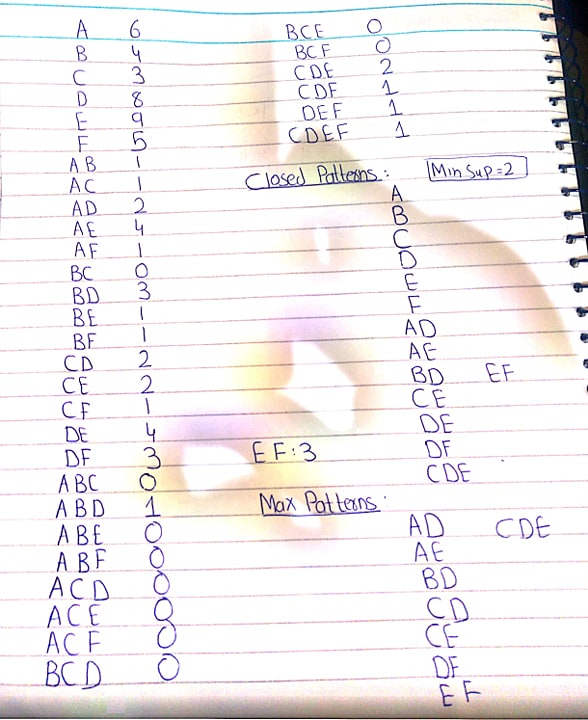 A 6
B 4
C 3
D 8
E 9
F 5
AB 1
AC 1
AD 2
AE 4
AF 1
BC 0
BD 3
BE 1
BF 1
CD 2
CE 2
CF 1
DE 4
DF 3
ABC 0
ABD 1
ABE 0
ABF 0
ACD 0
ACE 0
ACF 0
BCD 0
BCE 0
BCF 0
CDE 2
CDF 1
DEF 1
CDEF 1
Closed Patterns: Min Sup=2
A
B
C
D
E
F
AD
AE
BD EF
CE
DE
DF
CDE
EF:3
Max Patterns:
AD CDE
AE
BD
CD
CE
DF
EF